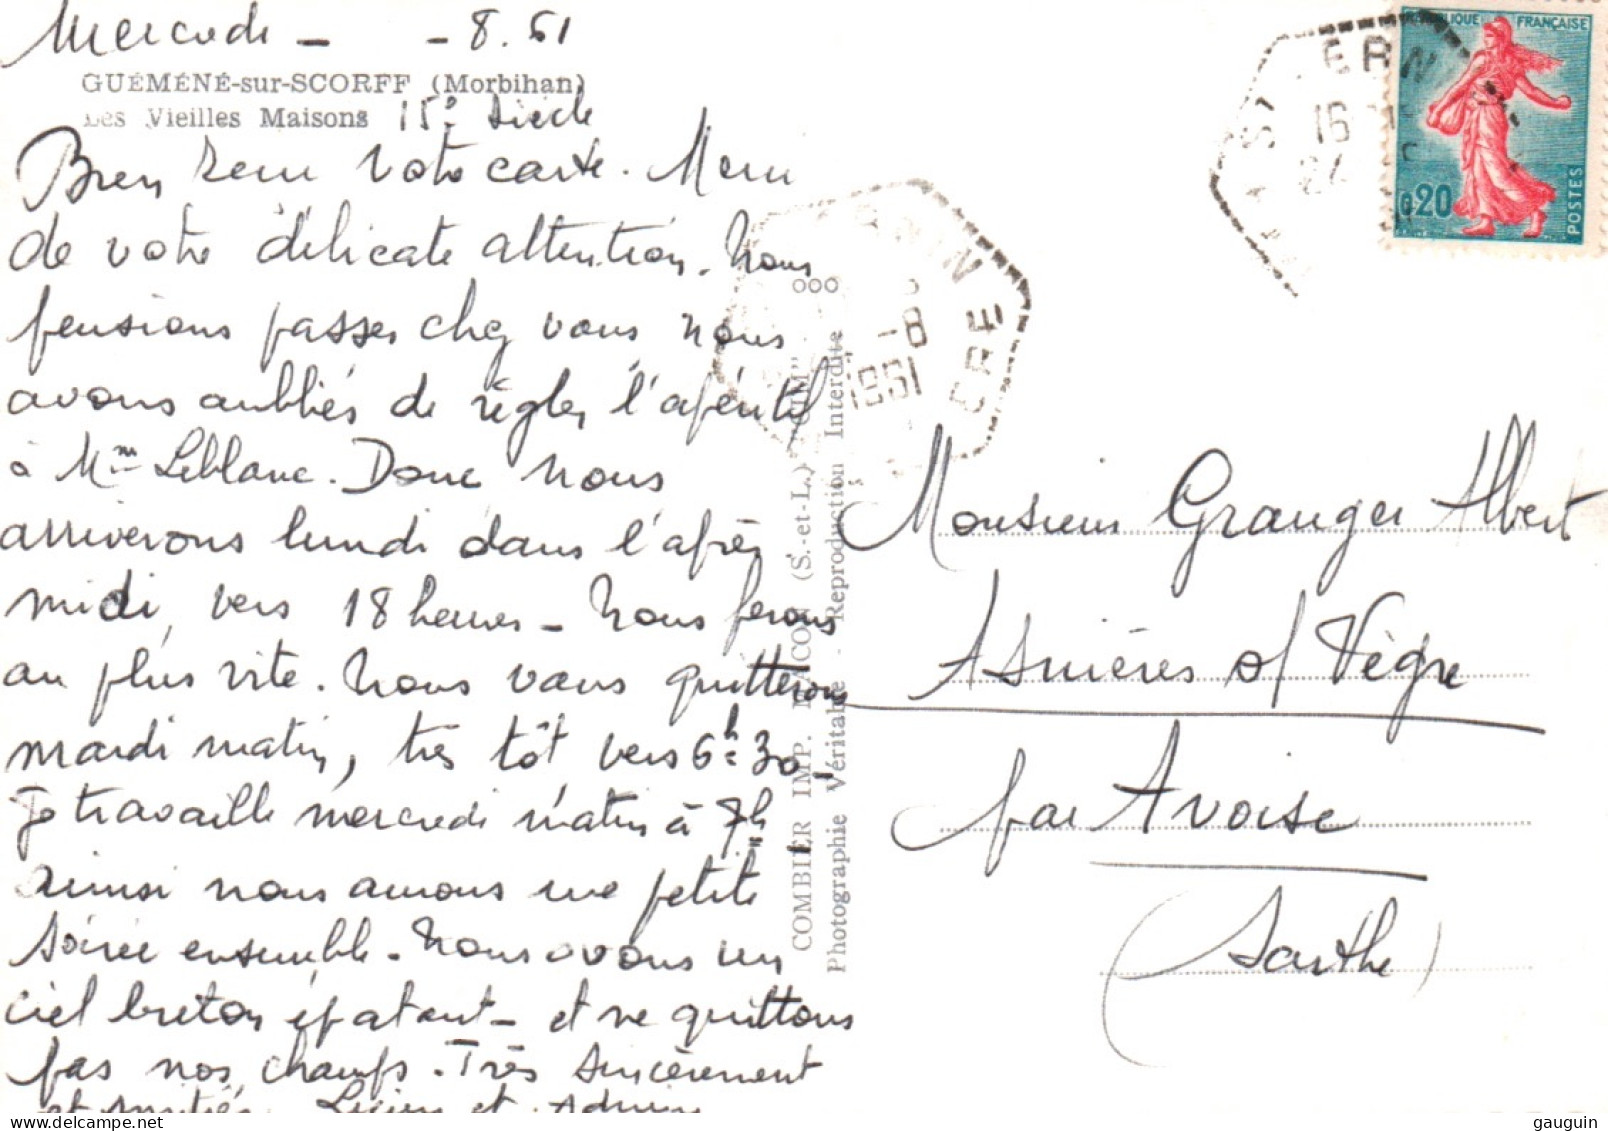 Mercredi - - 8.61
GUÉMÉNÉ-sur-SCORFF (Morbihan)
Les Vieilles Maisons 15e Siècle
Bien reçu votre carte. Merci
de votre délicate attention. Nous
pensions passer chez vous nous
avons oubliés de régler l'apéritif
à Mme Leblanc. Donc nous
arriverons lundi dans l'après
midi, vers 18 heures - Nous ferons
au plus vite. Nous vous quitterons
mardi matin, très tôt vers 6h30,
Je travaille mercredi matin à 7h
ainsi nous aurons une petite
soirée ensemble - Nous avons un
ciel breton épatant - et ne quittons
pas nos champs. Très sincèrement
et amitiés. Lucien et
COMBIER IMP. MACON (S.-et-L.) "CIM"
Photographie Véritable - Reproduction Interdite
-8
1961
16
RÉPUBLIQUE FRANÇAISE
0,20
POSTES
Monsieur Granger Albert
Asnières s/ Vègre
par Avoise
(Sarthe)
gauguin